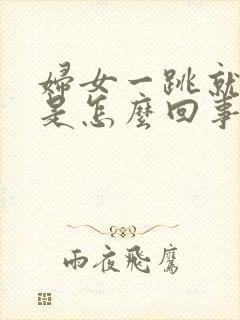 婦女一跳就
是怎麼回事
雨夜飛鷹